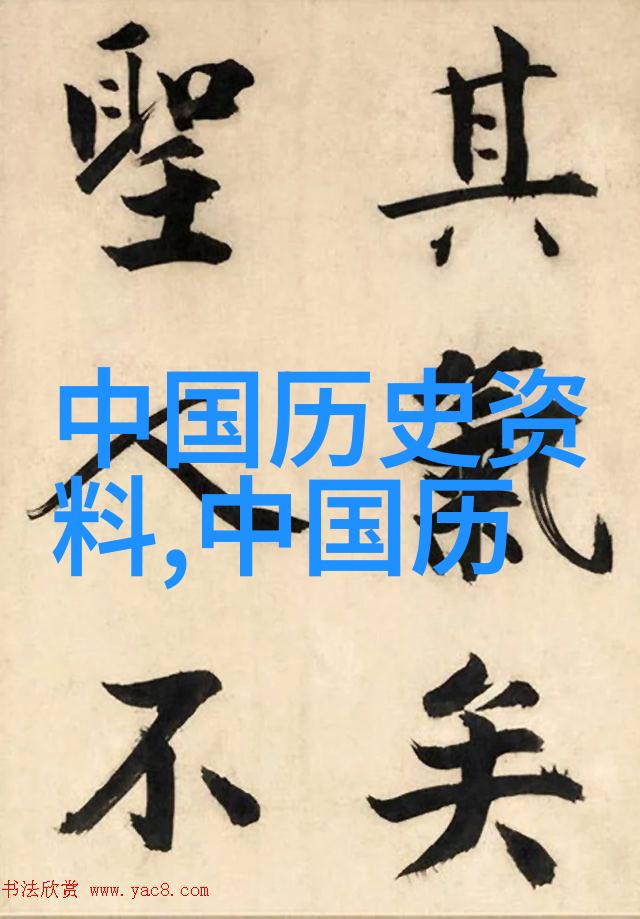 其氣矣
聖人不
中国历史资
料,中国历
书法欣赏 www.yac8.com